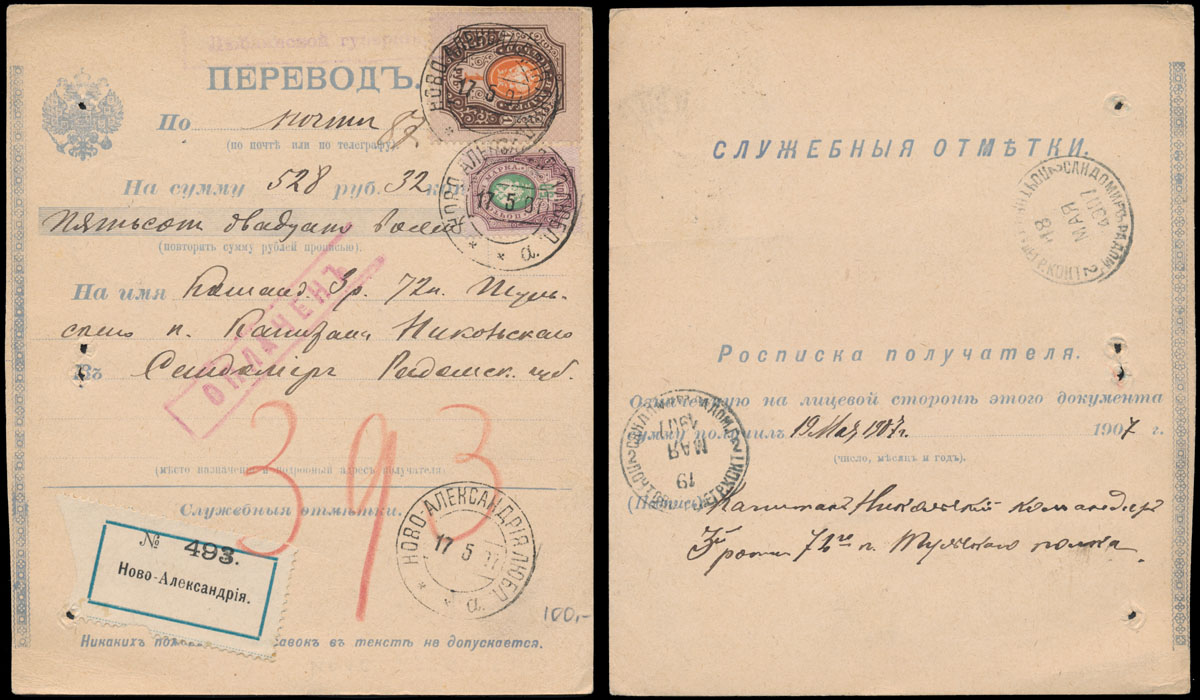 Люблинской губерніи
ПЕРЕВОДЪ.
По почти
87
(по почтѣ или по телеграфу)
На сумму 528 руб. 32 коп
Пятьсот двадцать восемь
(повторить сумму рублей прописью).
На имя Команд. 3 р. 72 п. Туль-
скаго п. Капитана Никольскаго
Въ Сандомир Радомск. губ.
ОПЛАЧЕНЪ
393
(мѣсто назначенія и подробный адресъ получателя)
Служебныя отмѣтки.
№ 493.
Ново-Александрія.
НОВО-АЛЕКСАНДРІЯ ЛЮБЛ.
17 5 07
а.
НОВО-АЛЕКСАНДРІЯ ЛЮБЛ.
17 5 07
а.
НОВО-АЛЕКСАНДРІЯ ЛЮБЛ.
17 5 07
а.
100,-
Никакихъ въ текстѣ не допускается.
СЛУЖЕБНЫЯ ОТМѢТКИ.
САНДОМИРЪ РАДОМ.
18
МАЯ
1907
Росписка получателя.
Означенную на лицевой сторонѣ этого документа
сумму получилъ 19 Мая 1907 г. 1907 г.
(число, мѣсяцъ и годъ).
19
МАЯ
1907
(Подпись) Капитанъ Никольскій командиръ
3й роты 72го п. Тульскаго полка.